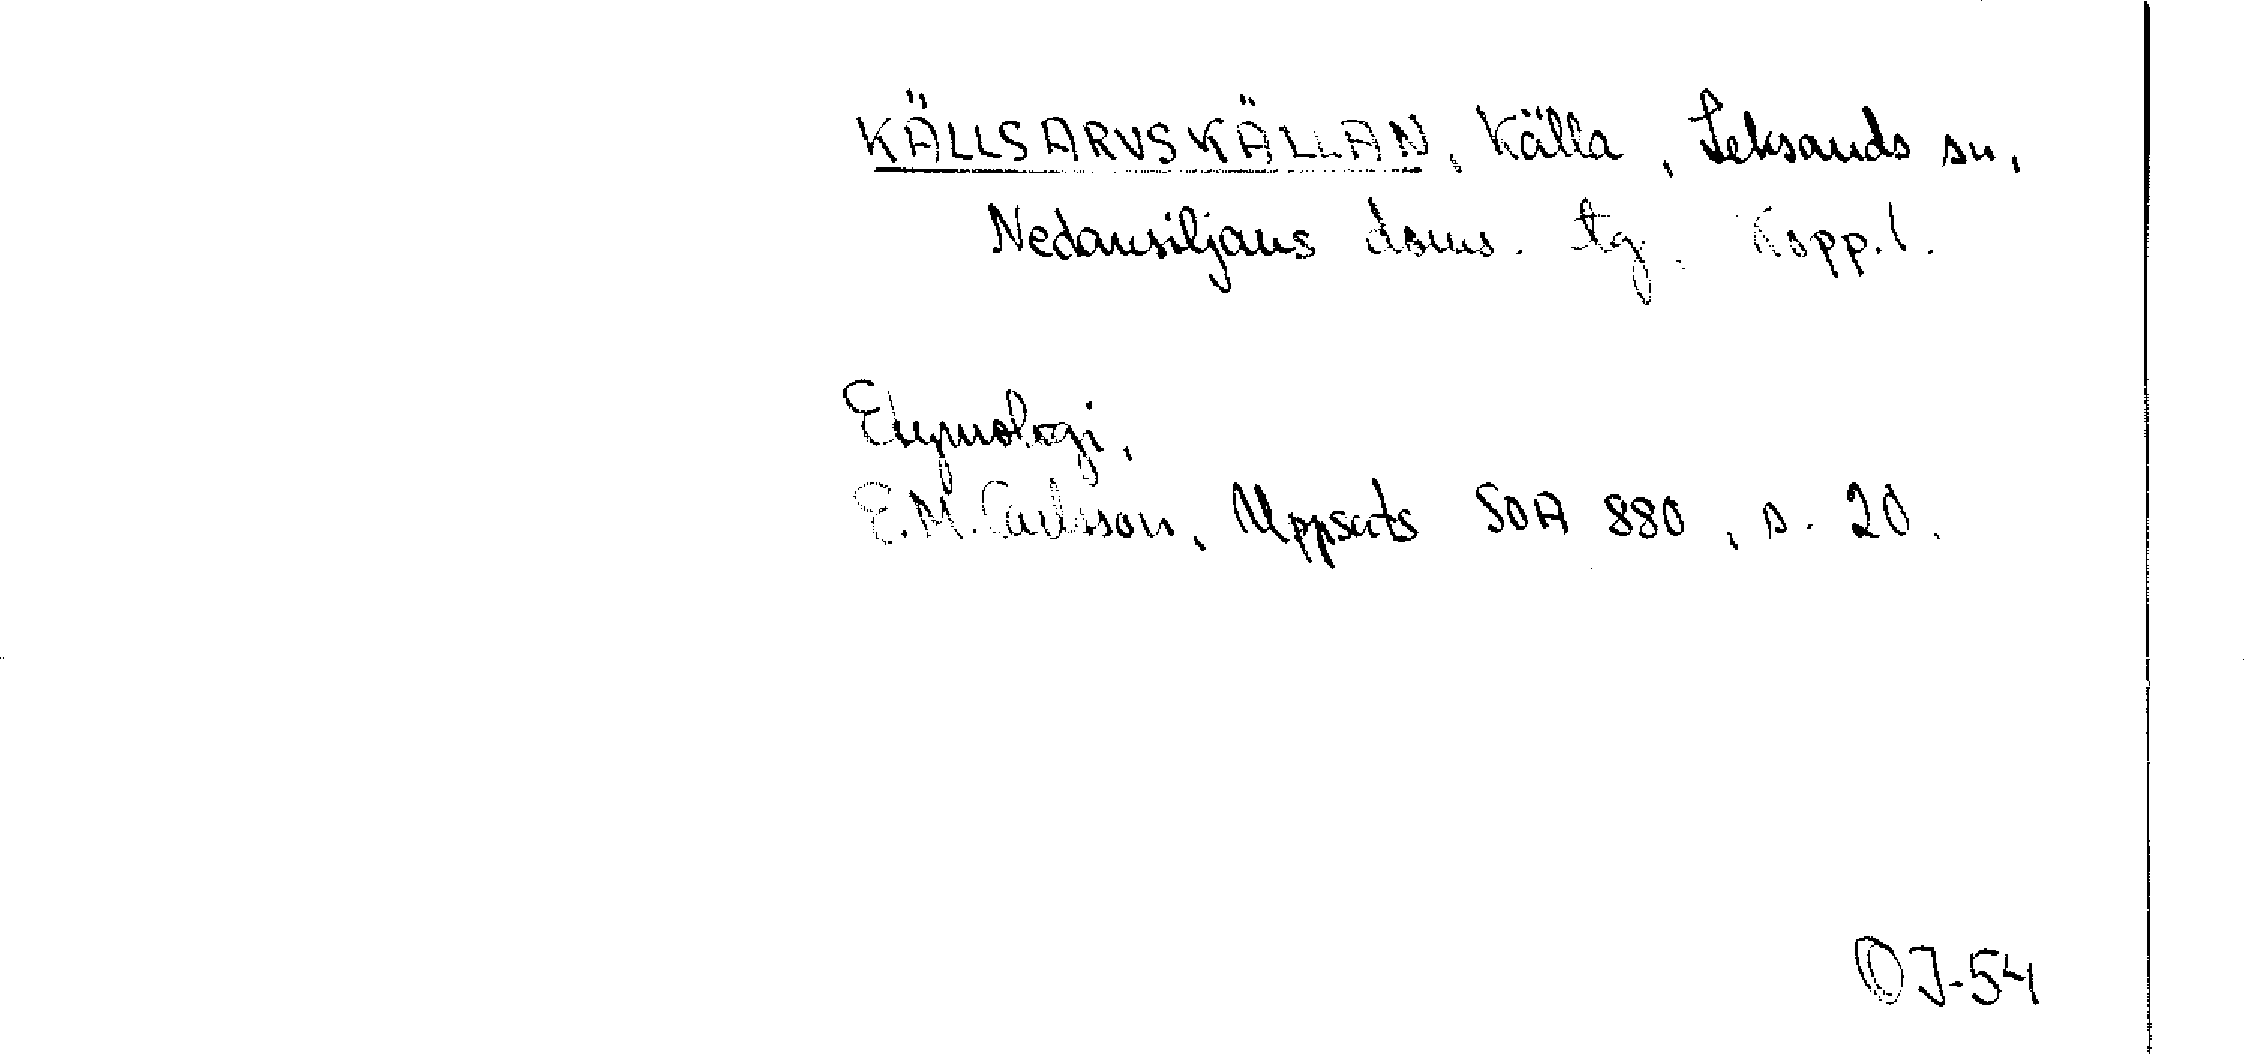 KÄLLSARVSKÄLLAN, Källa, Leksands sn,
Nedansiljans doms. tg. Kopp. l.
Etymologi,
E.M. Carlsson, Uppsats SOA 880, s. 20.
OJ-54